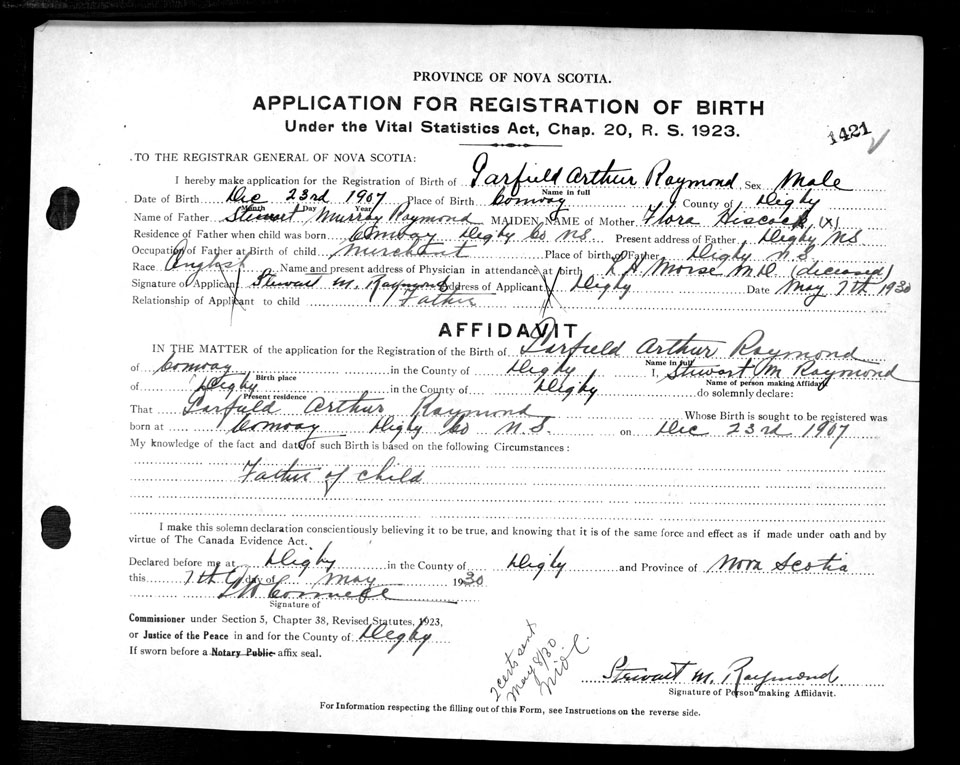 PROVINCE OF NOVA SCOTIA.
APPLICATION FOR REGISTRATION OF BIRTH
Under the Vital Statistics Act, Chap. 20, R. S. 1923.
1421
TO THE REGISTRAR GENERAL OF NOVA SCOTIA:
I hereby make application for the Registration of Birth of Garfield Arthur Raymond Sex Male
Name in full
Date of Birth Dec 23rd 1907 Place of Birth Conway County of Digby
Month Day Year
Name of Father Stewart Murray Raymond MAIDEN NAME of Mother Flora Hiscock (X)
Residence of Father when child was born Conway Digby Co NS Present address of Father Digby NS
Occupation of Father at Birth of child Merchant Place of birth of Father Digby N.S.
Race English Name and present address of Physician in attendance at birth Morse M.D. (deceased)
Signature of Applicant Stewart M. Raymond Address of Applicant Digby Date May 7th 1930
Relationship of Applicant to child Father
AFFIDAVIT
IN THE MATTER of the application for the Registration of the Birth of Garfield Arthur Raymond
Name in full
of Conway in the County of Digby I, Stewart M Raymond
Birth place Name of person making Affidavit
of Digby in the County of Digby do solemnly declare:
Present residence
That Garfield Arthur Raymond Whose Birth is sought to be registered was
born at Conway Digby Co N.S. on Dec 23rd 1907
My knowledge of the fact and date of such Birth is based on the following Circumstances:
Father of Child
I make this solemn declaration conscientiously believing it to be true, and knowing that it is of the same force and effect as if made under oath and by
virtue of The Canada Evidence Act.
Declared before me at Digby in the County of Digby and Province of Nova Scotia
this 7th day of May 1930
Signature of
Commissioner under Section 5, Chapter 38, Revised Statutes, 1923,
or Justice of the Peace in and for the County of Digby
If sworn before a Notary Public affix seal.
2 certs sent
May 8/30
Stewart M. Raymond
Signature of Person making Affidavit.
For Information respecting the filling out of this Form, see Instructions on the reverse side.